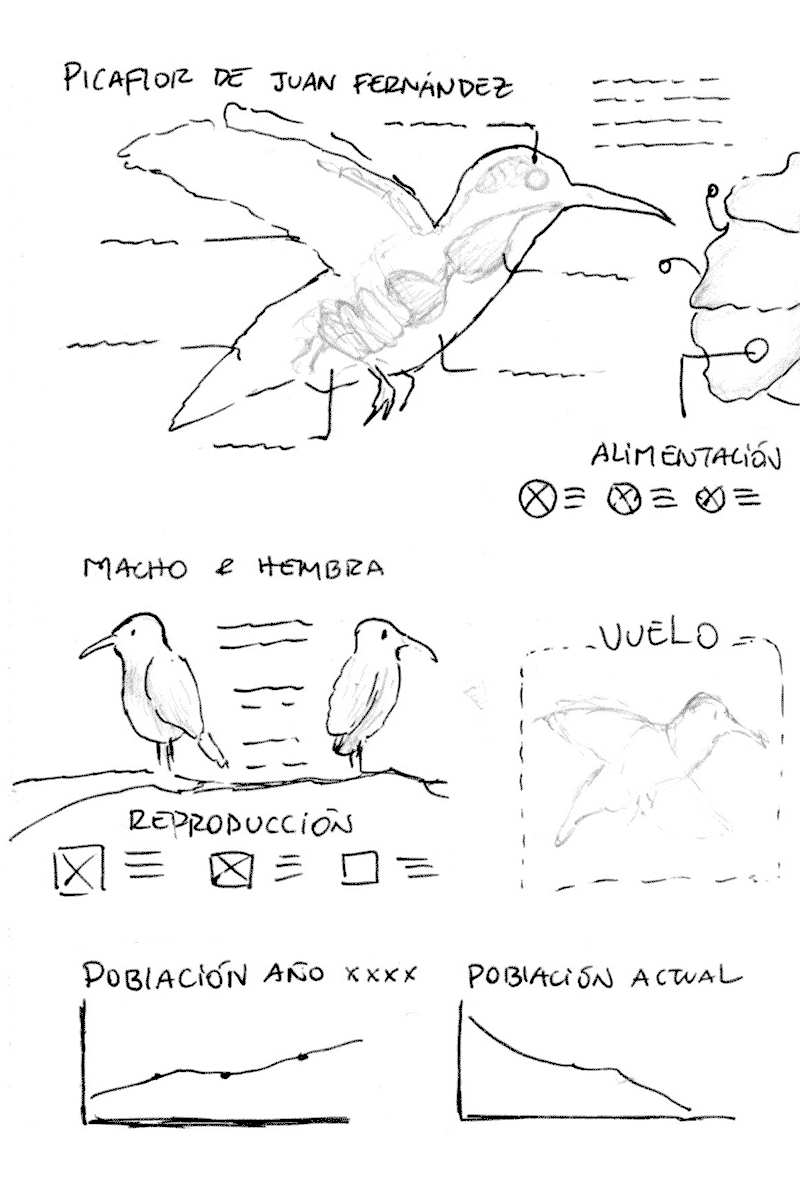 PICAFLOR DE JUAN FERNÁNDEZ
ALIMENTACIÓN
MACHO & HEMBRA
VUELO
REPRODUCCIÓN
POBLACIÓN AÑO XXXX
POBLACIÓN ACTUAL